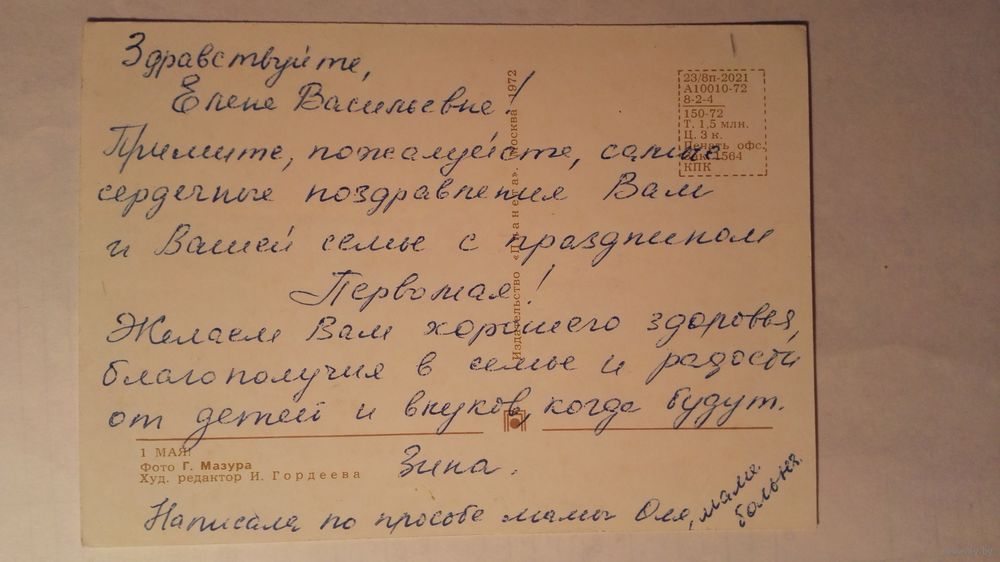 Здравствуйте,
Елена Васильевна!
Примите, пожалуйста, самые
сердечные поздравления Вам
и Вашей семье с праздником
Первомая!
Желаем Вам хорошего здоровья,
благополучия в семье и радости
от детей и внуков, когда будут.
Зина.
Написала по просьбе мамы Оля, мама
больна.
23/8п-2021
А10010-72
8-2-4
150-72
Т. 1,5 млн.
Ц. 3 к.
Печать офс.
Зак. 1564
КПК
Издательство «Планета». Москва 1972
1 МАЯ!
Фото Г. Мазура
Худ. редактор И. Гордеева